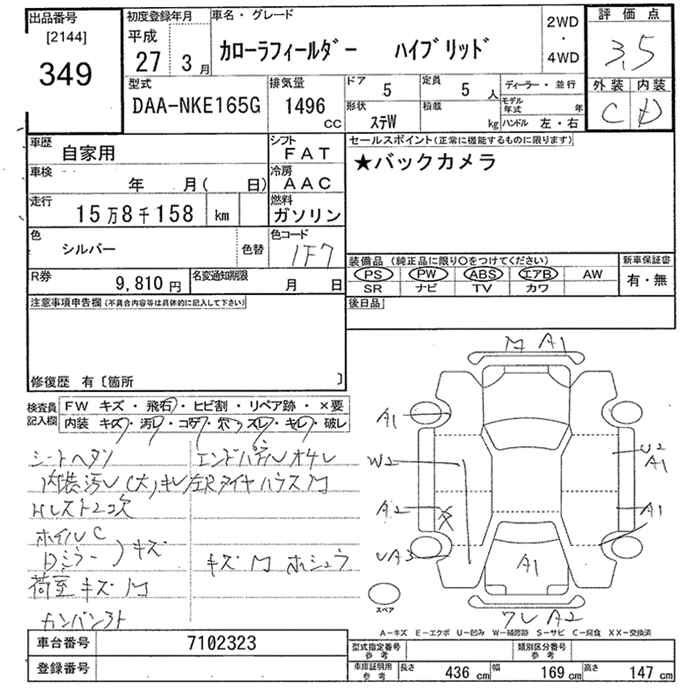 出品番号
[2144]
349
初度登録年月
平成
27 3月
車名・グレード
カローラフィールダー ハイブリッド
2WD
・
4WD
評価点
3.5
外装 内装
C D
型式
DAA-NKE165G
排気量
1496
CC
ドア
5
定員
5 人
形状
ステW
積載
kg
ディーラー・並行
モデル年式 年
ハンドル 左・右
車歴
自家用
シフト
FAT
車検
年 月( 日)
冷房
AAC
走行
15万8千158 km
燃料
ガソリン
色
シルバー
色替
色コード
1F7
R券
9,810円
名変通知期限
月 日
セールスポイント(正常に機能するものに限ります)
★バックカメラ
装備品(純正品に限り○をつけてください)
PS PW ABS エアB AW
SR ナビ TV カワ
新車保証書
有・無
後日品
注意事項申告欄(不具合内容等は具体的に記入して下さい)
修復歴 有〔箇所 〕
検査員記入欄
FW キズ・飛石・ヒビ割・リペア跡・×要
内装 キズ・汚レ・コゲ・穴・スレ・キレ・破レ
シートヘタリ
エンドパネルオサレ
内装汚レ(大)キレ
左Rタイヤハウス凹
Hレスト2コ欠
ホイルC
ミラー キズ
キズ凹ホシュウ
荷室キズ凹
カンバン
凹 A1
A1
W2
A2
UA3
U2
A1
A1
A1
ワレ A2
スペア
A-キズ E-エクボ U-凹み W-補修跡 S-サビ C-腐食 XX-交換済
車台番号
7102323
登録番号
型式指定番号
参考
類別区分番号
参考
車庫証明用
参考
長さ 436 cm
幅 169 cm
高さ 147 cm